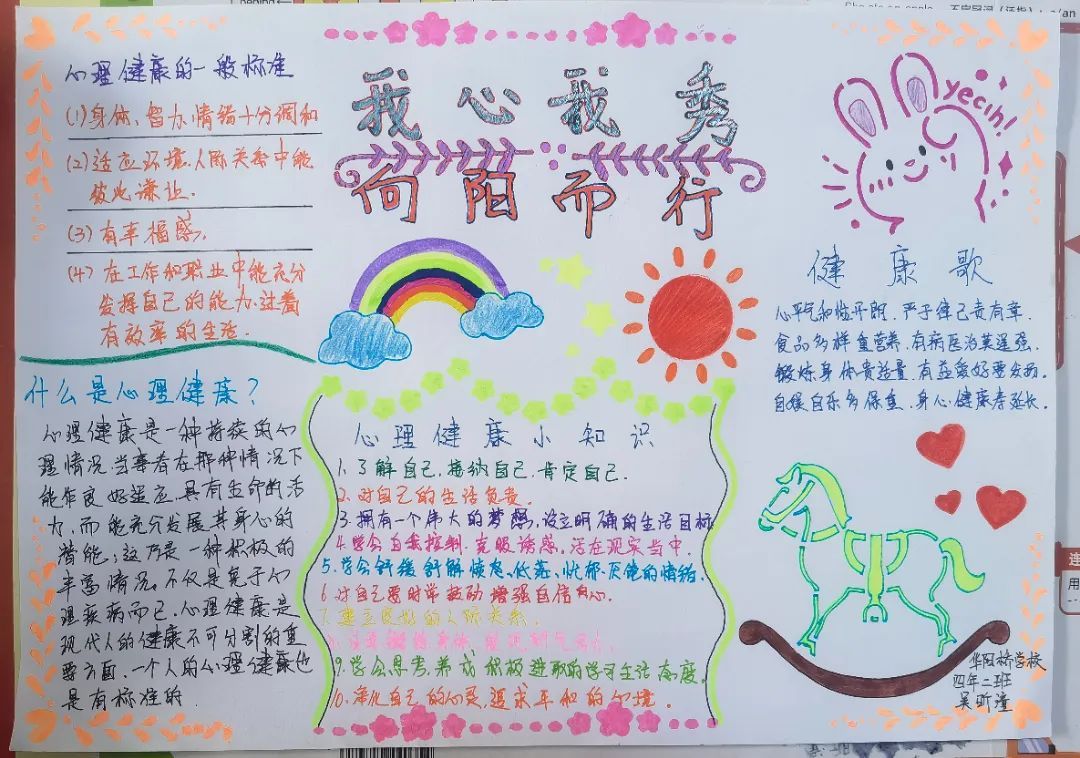 心理健康的一般标准
(1)身体、智力、情绪十分调和
(2)适应环境、人际关系中能
彼此谦让.
(3)有幸福感.
(4)在工作和职业中能充分
发挥自己的能力.过着
有效率的生活
我心我秀
向阳而行
yecih!
什么是心理健康?
心理健康是一种持续的心
理情况.当事者在那种情况下
能作良好适应.具有生命的活
力.而能充分发展其身心的
潜能;这乃是一种积极的
丰富情况.不仅是免于心
理疾病而已.心理健康是
现代人的健康不可分割的重
要方面.一个人的心理健康也
是有标准的.
心理健康小知识
1.了解自己.接纳自己.肯定自己.
2.对自己的生活负责.
3.拥有一个伟大的梦想.设立明确的生活目标
4.学会自我控制.克服诱惑.活在现实当中.
5.学会舒缓舒解愤怒、低落、忧郁、厌倦的情绪.
6.对自己要时常鼓励增强自信心.
7.建立良好的人际关系.
9.学会思考.养成积极进取的学习生活态度.
10.净化自己的心灵.追求平和的心境.
健康歌
心平气和性开朗.严于律己责有幸.
食品多样重营养.有病医治莫逞强.
锻炼身体贵适量.有益爱好要发扬.
自娱自乐多保重.身心健康寿延长.
华阳桥学校
四年二班